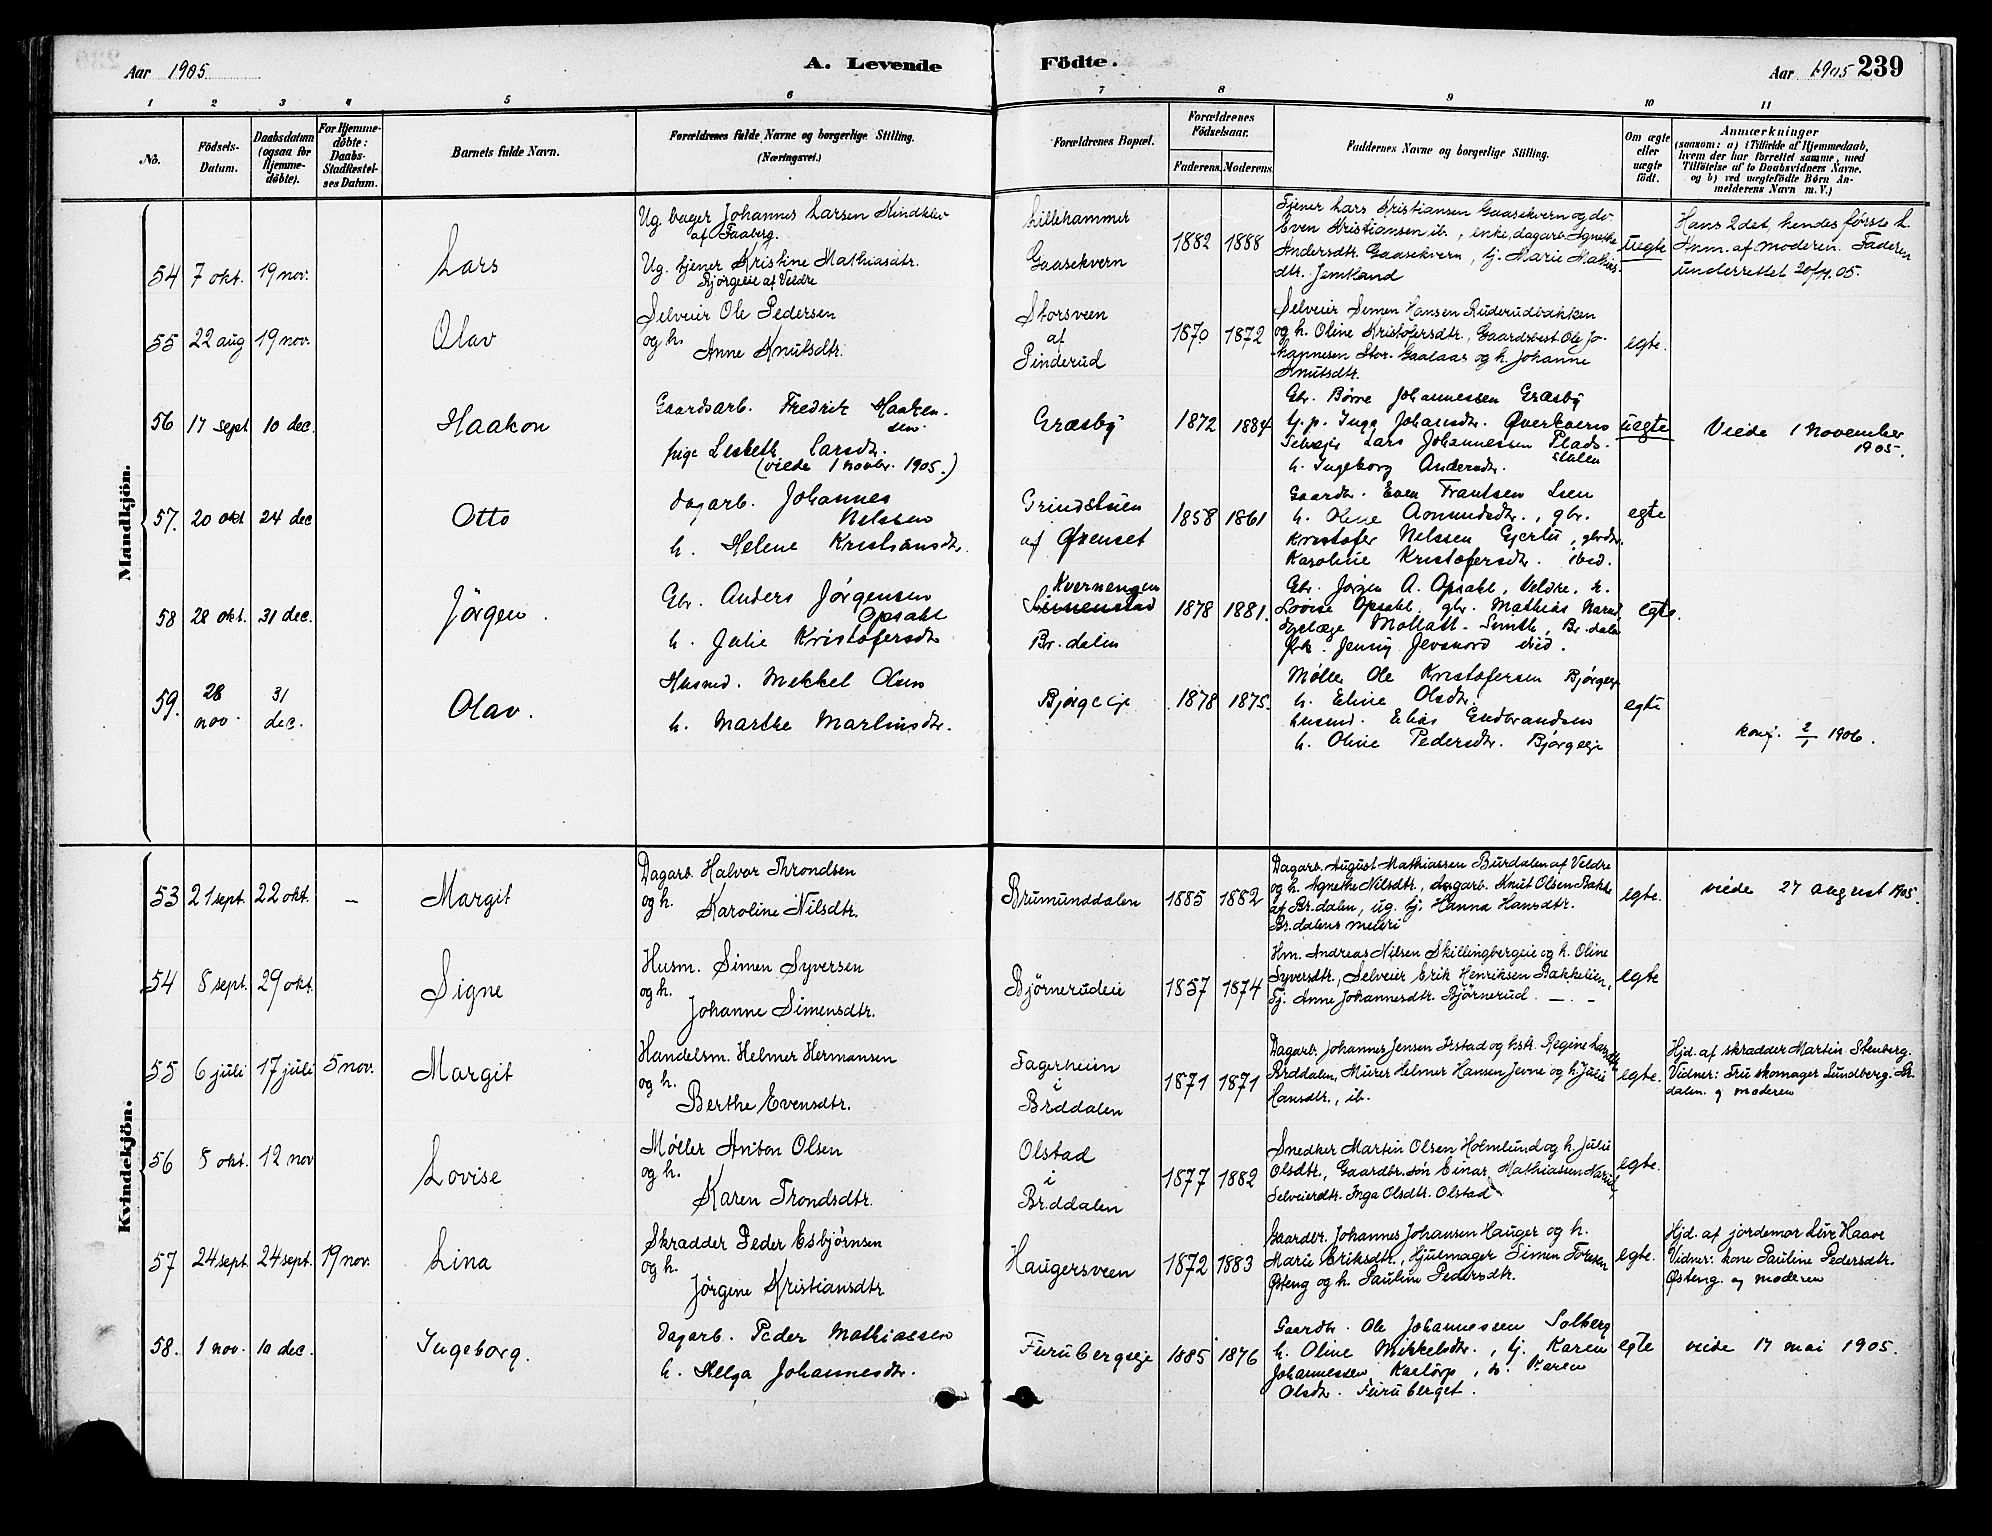 Aar 1905
A. Levende Födte.
Aar 1905 239
1 2 3 4 5 6 7 8 9 10 11
No.
Födsels-Datum.
Daabsdatum (ogsaa for Hjemmedöbte).
For Hjemmedöbte: Daabs-Stadfæstelses Datum.
Barnets fulde Navn.
Forældrenes fulde Navne og borgerlige Stilling.
(Næringsvei.)
Forældrenes Bopæl.
Forældrenes Födselsaar.
Faderens. Moderens.
Faddernes Navne og borgerlige Stilling.
Om ægte eller uægte födt.
Anmærkninger
(saasom: a) i Tilfælde af Hjemmedaab,
hvem der har forrettet samme, med
Tilföielse af to Daabsvidners Navne.
og b) ved uægtefödte Börn An-
melderens Navn m. V.)
Mandkjön.
54 7 okt. 19 nov. Lars
Ug. bager Johannes Larsen Kindklev
af Faaberg.
Ug. tjener Kristine Mathiasdtr.
Bjørgeie af Veldre
Lillehammer
Gaasekvern
1882 1888
Tjener Lars Kristiansen Gaasekvern og do
Even Kristiansen ib., enke, dagarb. Agnethe
Andersdtr. Gaasekvern, tj. Marie Mathis-
dtr. Jemtland
uegte
Hans 2det, hendes første L.
Anm. af moderen. Faderen
underrettet 20/11 05.
55 22 aug 19 nov. Olav
Selveier Ole Pedersen
og h.
Anne Knutsdtr.
Storsveen
af
Pinderud
1870 1872
Selveier Simen Hansen Ruderudbakken
og h. Oline Kristofersdtr., Gaardsbest. Ole Jo-
hannesen Stor-Gaalaas og h. Johanne
Knutsdtr.
egte.
56 17 sept 10 dec. Haakon
Gaardsarb. Fredrik Haaken-
sen.
pige Lisbeth Larsdtr.
(viede 1 novbr. 1905.)
Græsby
1872 1884
Gbr. Børre Johannessen Græsby
tj. p. Inga Johansdtr. Øverkvern
Selvejer Lars Johannessen Plads-
stuen
h. Ingeborg Andersdtr.
uegte
Viede 1 November
1905.
57. 20 okt 24 dec Otto
Dagarb. Johannes
Nelssen
h. Helene Kristiansdtr.
Grindstuen
af Øvenset
1858 1861
Gaardbr. Even Frantsen Lien
h. Oline Aomundsdtr., gbr.
Kristofer Nelssen Gjerlu, gbrdtr.
Karoline Kristofersdtr. ibid.
egte
58 28 okt. 31 dec. Jörgen.
Gbr. Anders Jørgensen
Opsahl
h. Julie Kristofersdtr
Kvernengen
Br. dalen
1878 1881.
Gbr. Jørgen A. Opsahl, Veldre, h.
Lovise Opsahl, gbr. Mathias Narud
Dyrlæge Smith, Br. dalen
frk. Jenny Jevanord ibid.
egte.
59. 28 nov. 31 dec. Olav.
Husmd. Mekkel Olsen
h. Marthe Martinsdtr.
Bjørgeije
1878 1875.
Møller Ole Kristofersen Bjørgeije
h. Eline Olsdtr.
husmd. Elias Gudbrandsen
h. Oline Pedersdtr. Bjørgeeje
egte
konf. 2/1 1906.
Kvindekjön.
53 21 sept. 22 okt. — Margit
Dagarb. Halvor Throndsen
og h.
Karoline Nilsdtr.
Brumunddalen
1885 1882
Dagarb. August Mathiassen Burdalen af Veldre
og h. Agnethe Nilsdtr., dagarb. Knut Olsen Bakke
af Br.dalen, ug. tj. Hanna Hansdtr.
Br.dalens meieri
egte.
viede 27 august 1905.
54 8 sept. 29 okt. Signe
Husm. Simen Syversen
og h.
Johanne Simensdtr.
Björnerudeie
1857 1874
Hm. Andreas Nilsen Skillingbergeie og h. Oline
Syversdtr., Selveier Erik Henriksen Bakkelien,
Tj. Anne Johannesdtr. Bjørnerud. — . —
egte
55 6 juli 17 juli 5 nov. Margit
Handelsm. Helmer Hermansen
og h.
Berthe Evensdtr.
Fagerheim
i
Br.ddalen
1871 1871
Dagarb. Johannes Jensen Isstad og hstr. Regine Larsdtr.
Brddalen, Murer Helmer Hansen Jevne og h. Julie
Hansdtr., ib.
egte.
Hjd. af skrædder Martin Stenberg.
Vidner: Fru skomager Lundberg. Br.
dalen. og moderen
56 8 okt. 12 nov Lovise
Møller Anton Olsen
og h.
Karen Trondsdtr.
Olstad
i
Br.ddalen
1877 1882
Snedker Martin Olsen Holmlund og h. Julie
Olsdtr., Gaardbr. søn Einar Mathiasen Narud,
Selveierdtr. Inga Olsdtr. Olstad
egte.
57 24 sept. 24 sept. 19 nov. Lina
Skrædder Peder Esbjørnsen
og h.
Jörgine Kristiansdtr
Haugersveen
1872 1883
Gaardbr. Johannes Johansen Hauger og h.
Marie Eriksdtr., Hjulmager Simen Toresen
Østeng og h. Pauline Pedersdtr.
egte.
Hjd. af jordemor Live Haave
Vidner: kone Pauline Pedersdtr.
Østeng. og moderen
58. 1 nov. 10 dec. Ingeborg.
Dagarb. Peder Mathiassen
h. Helga Johannesdtr.
Furubergseje
1885 1876
Gaardbr. Ole Johannessen Solberg
h. Oline Mikkelsdtr., tj. Karen
Johannessen Karlörp, h. Karen
Olsdtr. Furuberget.
egte
viede 17 mai 1905.